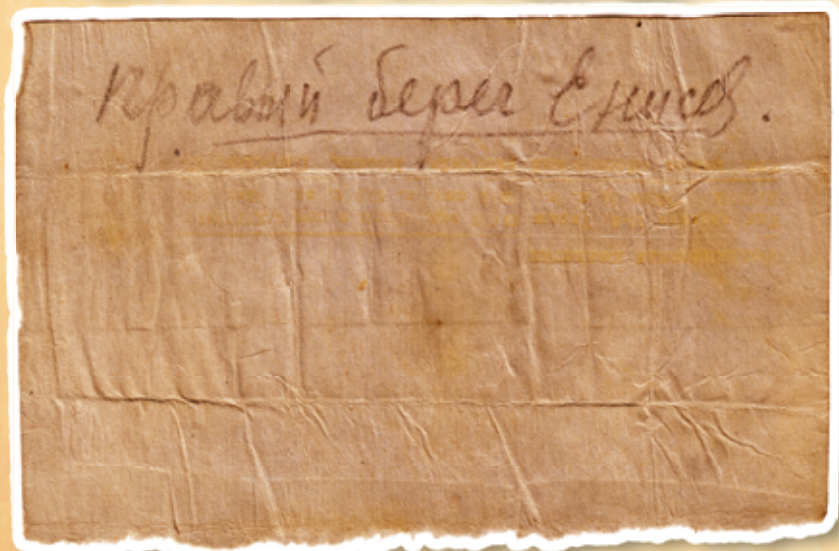 Правый берег Енисея.